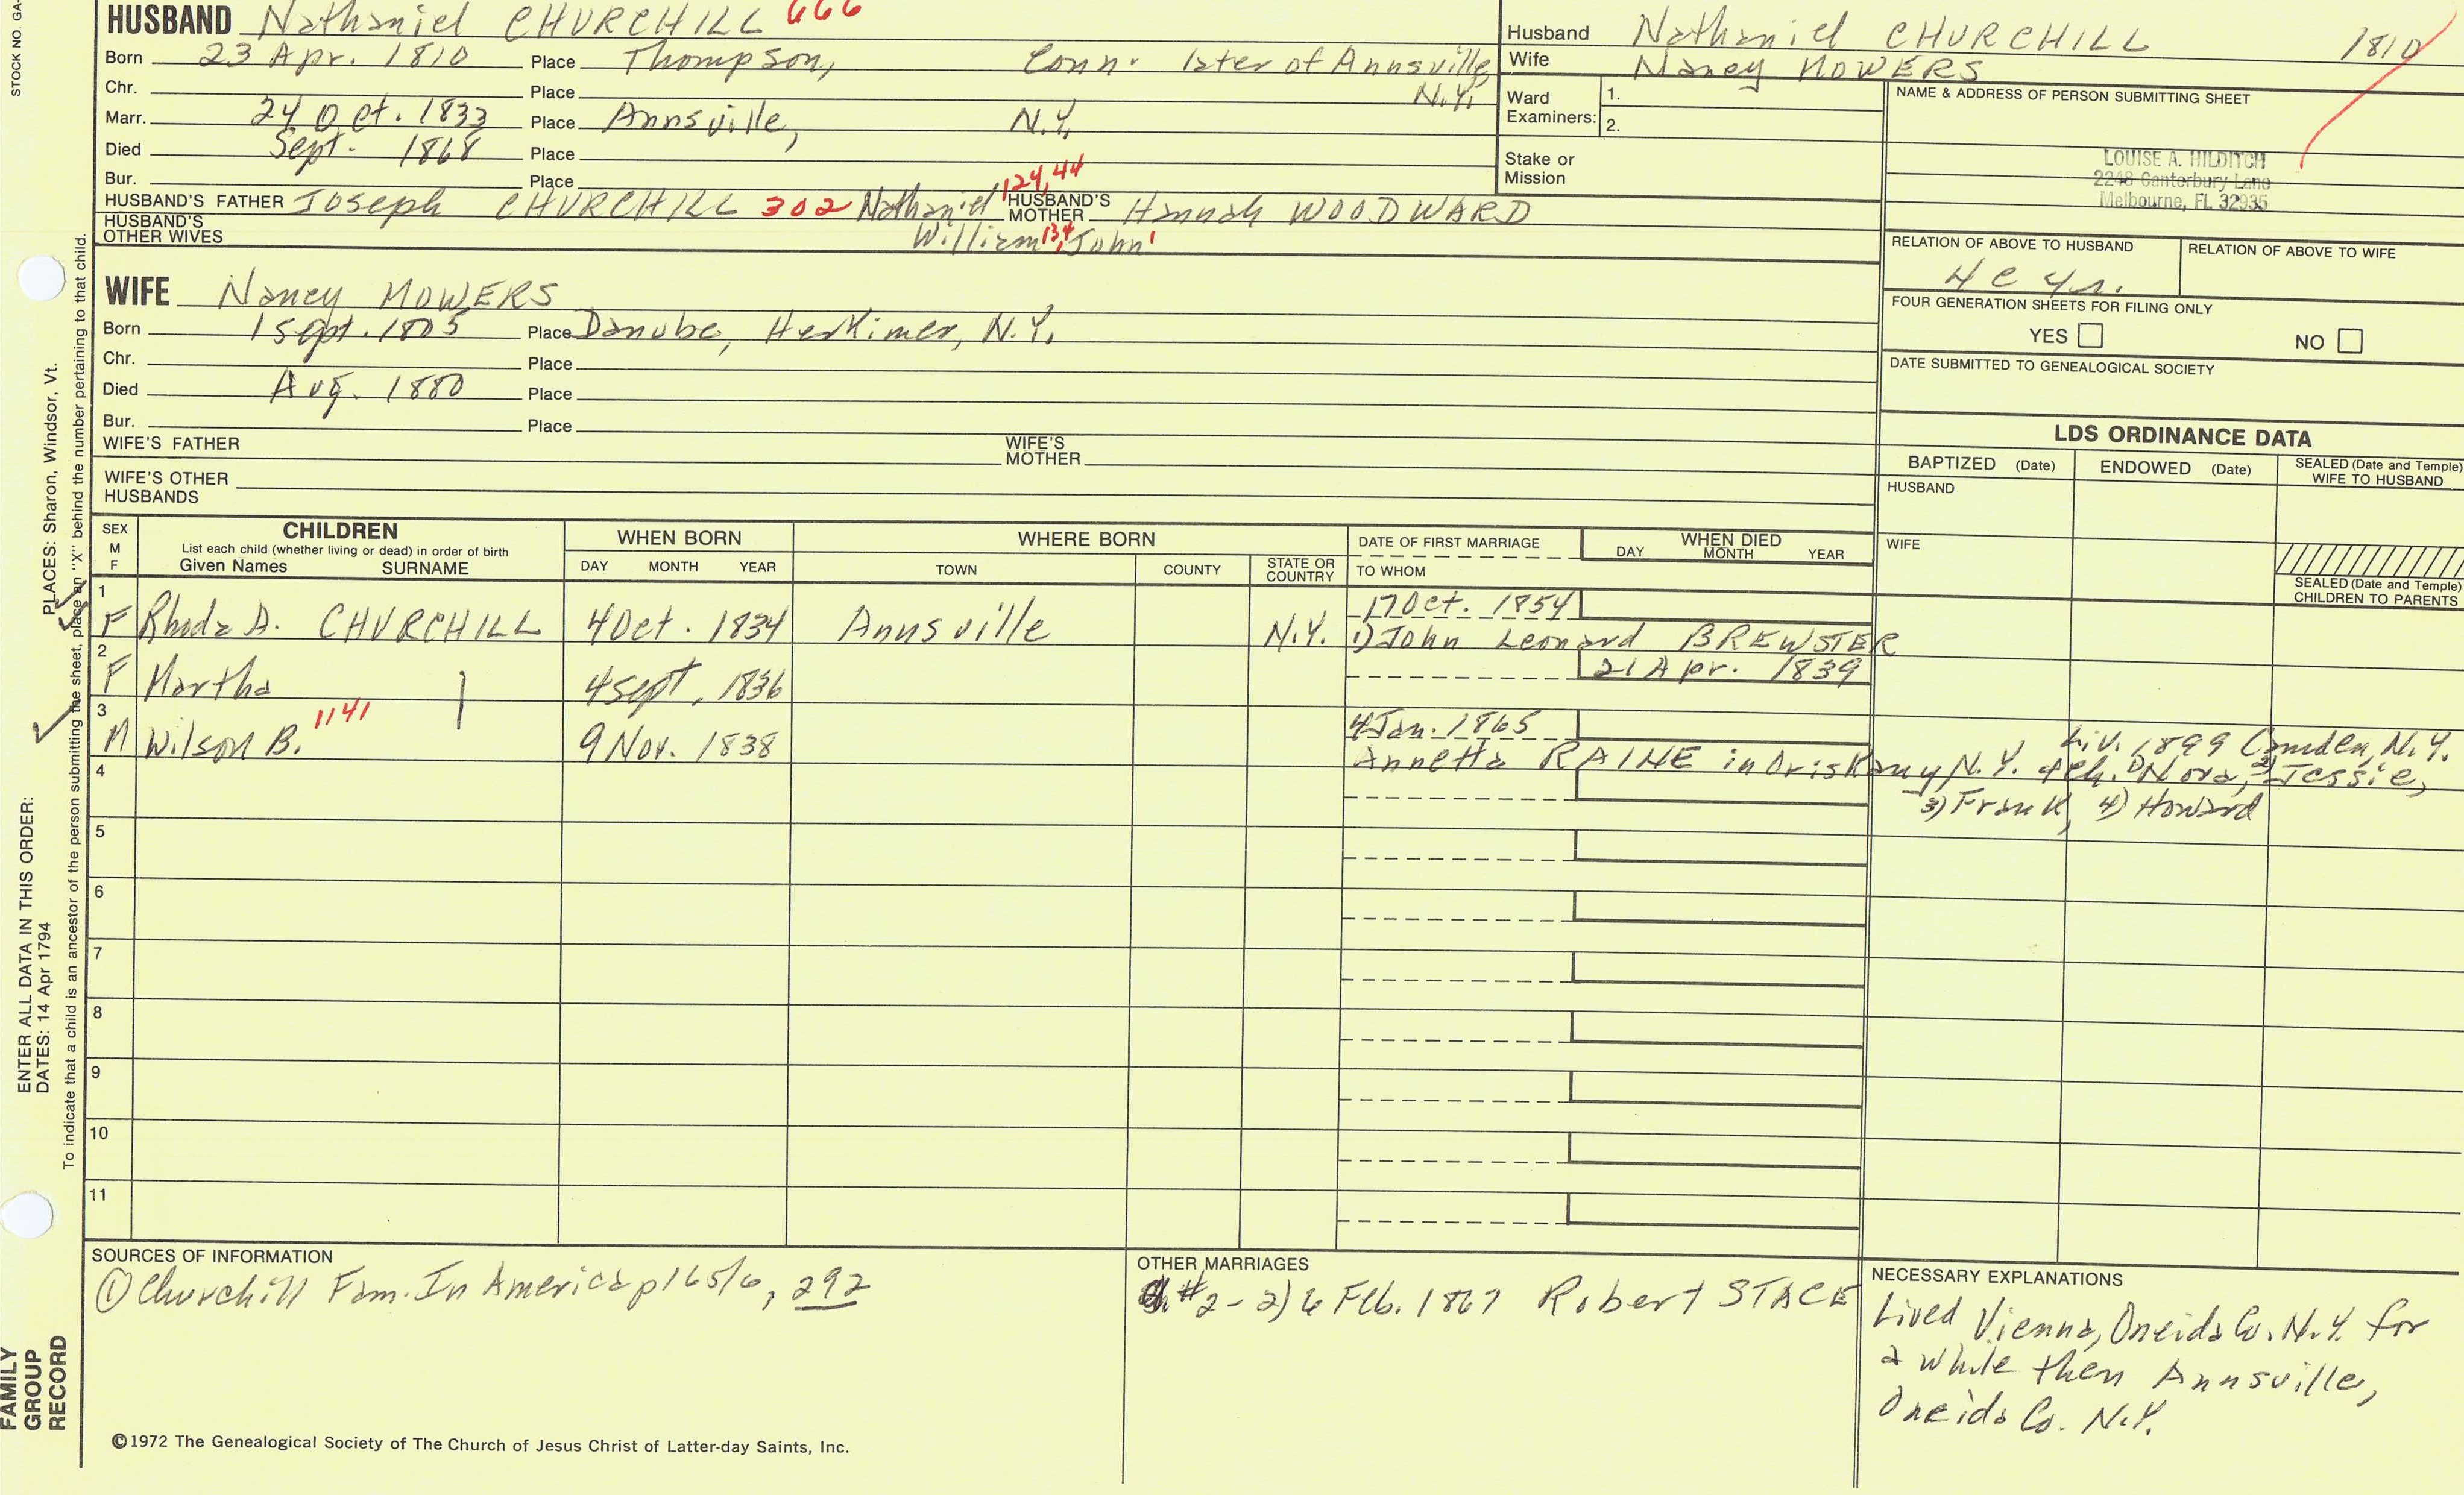 STOCK NO. GA-
HUSBAND Nathaniel CHURCHILL 666
Born 23 Apr. 1810 Place Thompson, Conn. later of Annsville, N.Y.
Chr. Place
Marr. 24 Oct. 1833 Place Annsville, N.Y.
Died Sept. 1868 Place
Bur. Place
HUSBAND'S FATHER Joseph CHURCHILL 302 Nathaniel 124, 44 HUSBAND'S MOTHER Hannah WOODWARD
HUSBAND'S OTHER WIVES William 134, John 1
Husband Nathaniel CHURCHILL 1810
Wife Nancy MOWERS
Ward Examiners: 1.
2.
Stake or Mission
NAME & ADDRESS OF PERSON SUBMITTING SHEET
LOUISE A. HILDITCH
2248 Canterbury Lane
Melbourne, FL 32935
RELATION OF ABOVE TO HUSBAND RELATION OF ABOVE TO WIFE
4 c 4r.
FOUR GENERATION SHEETS FOR FILING ONLY
YES NO
DATE SUBMITTED TO GENEALOGICAL SOCIETY
WIFE Nancy MOWERS
Born 1 Sept. 1805 Place Danube, Herkimer, N.Y.
Chr. Place
Died Aug. 1880 Place
Bur. Place
WIFE'S FATHER WIFE'S MOTHER
WIFE'S OTHER HUSBANDS
LDS ORDINANCE DATA
BAPTIZED (Date) ENDOWED (Date) SEALED (Date and Temple) WIFE TO HUSBAND
HUSBAND
WIFE
SEALED (Date and Temple) CHILDREN TO PARENTS
SEX M F
CHILDREN
List each child (whether living or dead) in order of birth
Given Names SURNAME
WHEN BORN
DAY MONTH YEAR
WHERE BORN
TOWN COUNTY STATE OR COUNTRY
DATE OF FIRST MARRIAGE
TO WHOM
WHEN DIED
DAY MONTH YEAR
1 F Rhoda A. CHURCHILL 4 Oct. 1834 Annsville N.Y. 17 Oct. 1854
1) John Leonard BREWSTER
2 F Martha 4 Sept. 1836 21 Apr. 1839
3 M Wilson B. 1141 9 Nov. 1838 4 Jan. 1865
Annetta RAINE in Oriskany N.Y. 4 ch. 1) Nora, 2) Jessie,
liv. 1899 Camden, N.Y.
3) Frank, 4) Howard
4
5
6
7
8
9
10
11
SOURCES OF INFORMATION
① Churchill Fam. In America p165/6, 292
OTHER MARRIAGES
#2 - 2) 6 Feb. 1867 Robert STACE
NECESSARY EXPLANATIONS
Lived Vienna, Oneida Co. N.Y. for
a while then Annsville,
Oneida Co. N.Y.
©1972 The Genealogical Society of The Church of Jesus Christ of Latter-day Saints, Inc.
FAMILY GROUP RECORD
ENTER ALL DATA IN THIS ORDER:
DATES: 14 Apr 1794
PLACES: Sharon, Windsor, Vt.
To indicate that a child is an ancestor of the person submitting the sheet, place an "X" behind the number pertaining to that child.